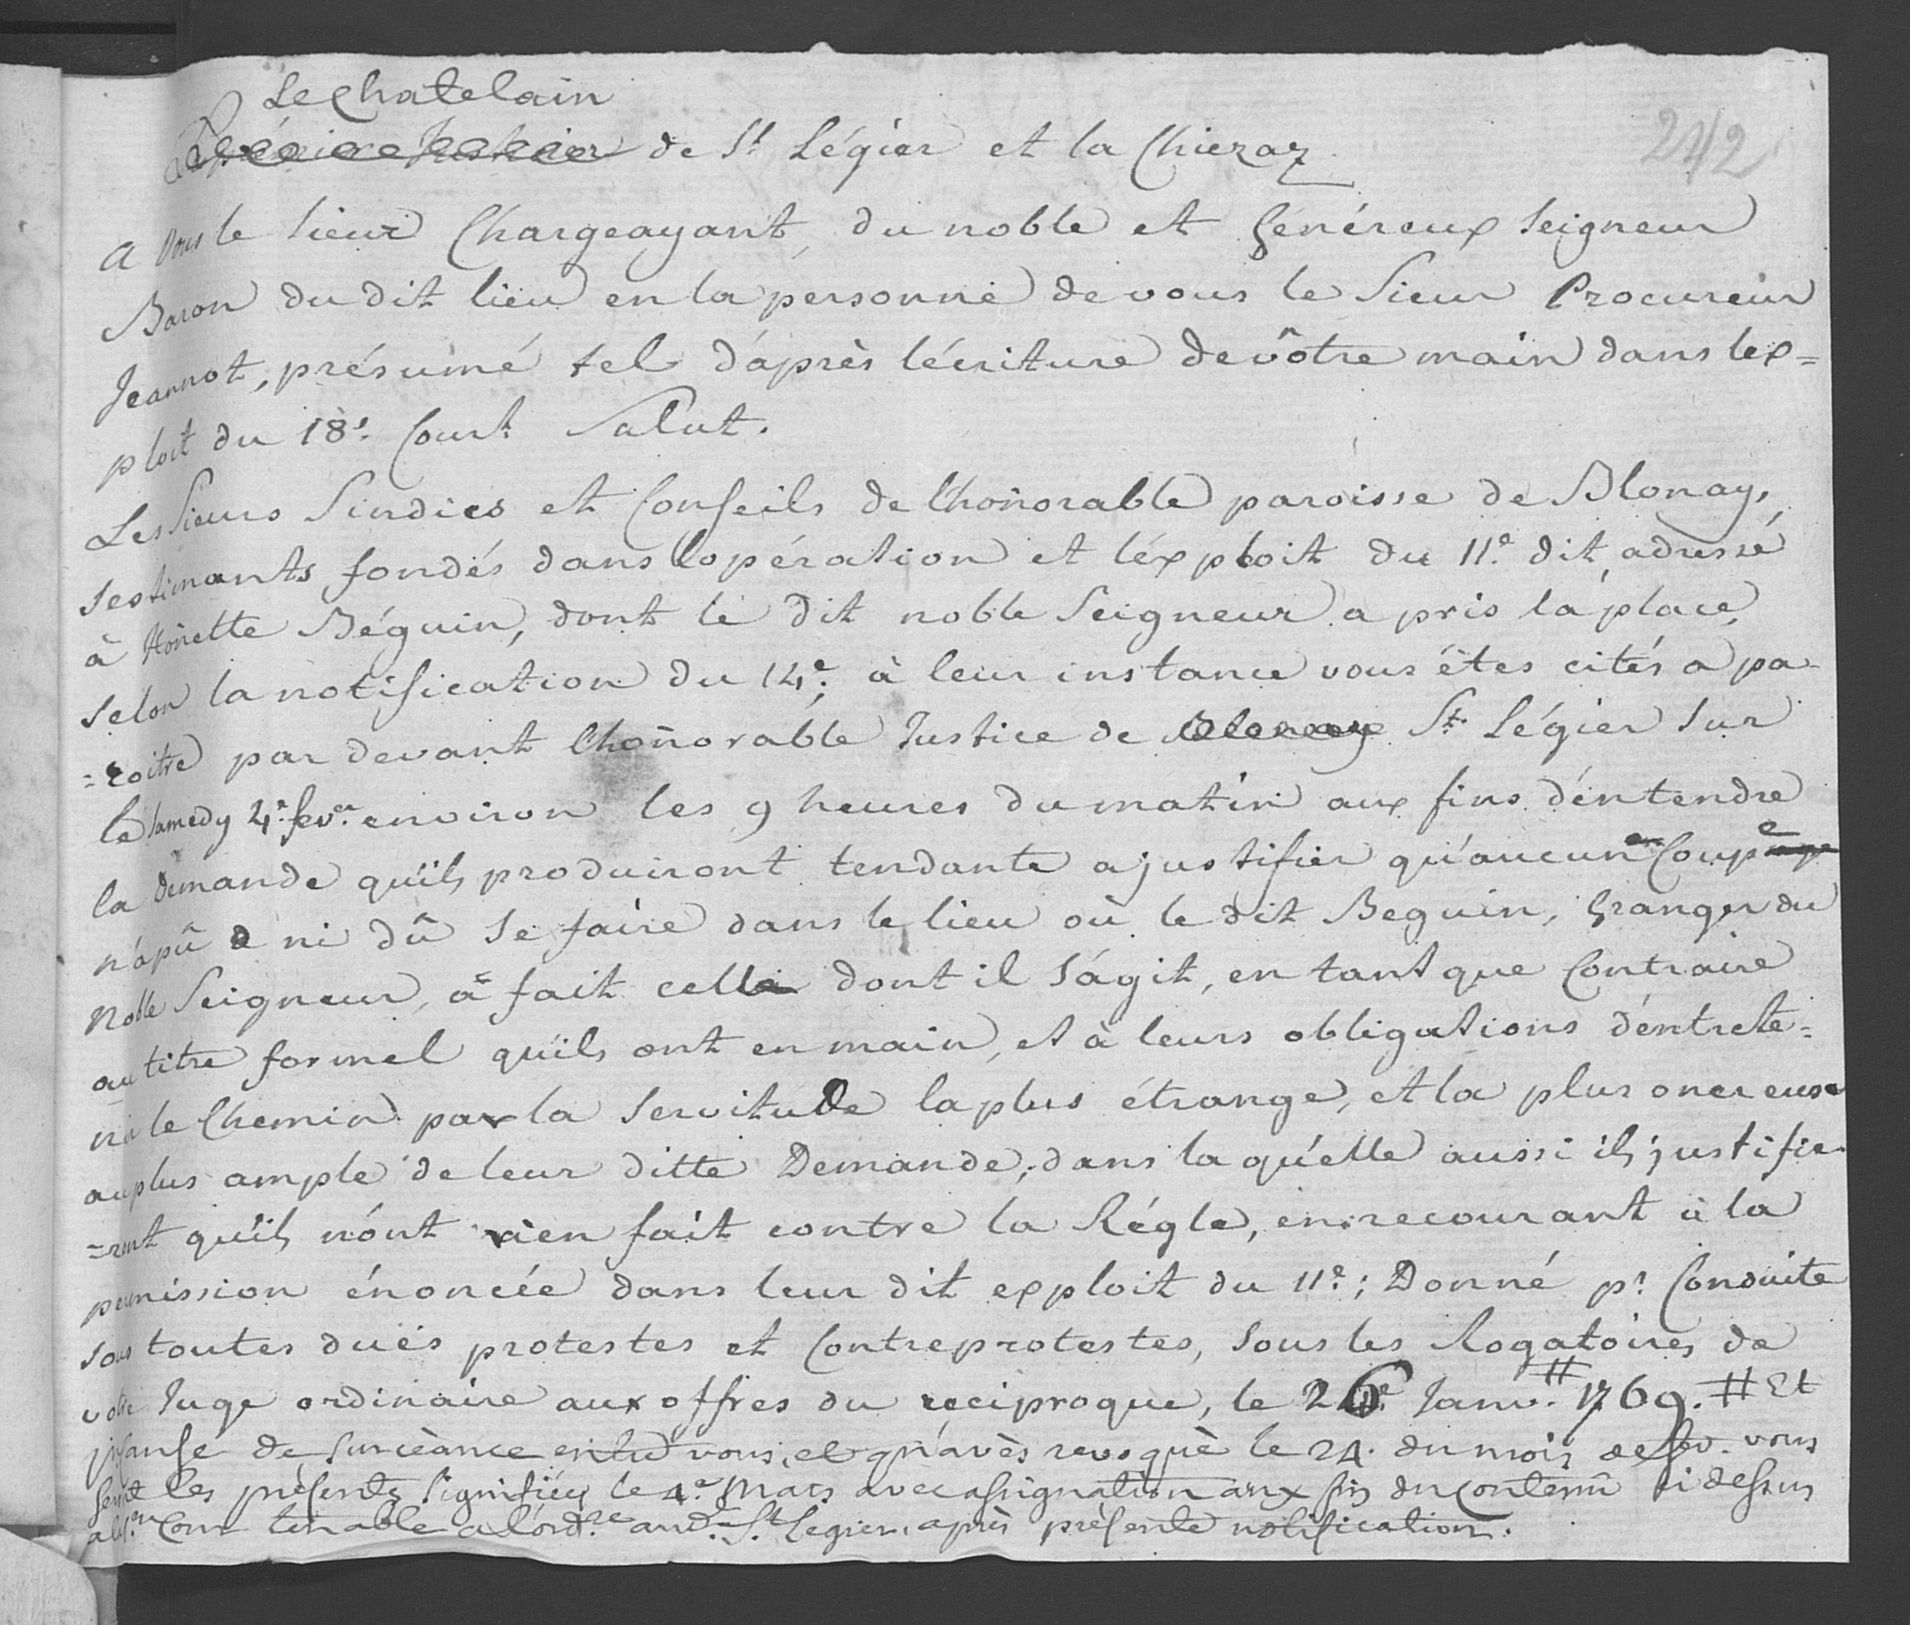 Le Chatelain
de St Légier et la Chiezaz
242
A vous le Sieur Chargeayant, du noble et Généreux Seigneur
Baron du dit lieu en la personne de vous le Sieur Procureur
Jeannot, présumé tel d'après l'écriture de vôtre main dans l'ex=
ploit du 18e. Court. Salut.
Les Sieurs Sindics et Conseils de l'honorable paroisse de Blonay,
s'estimants fondés dans l'opération et l'éxploit du 11e. dit, adressé
à Honette Béguin, dont le dit noble Seigneur a pris la place,
selon la notification du 14e; à leur instance vous êtes cités a pa
=roitre par devant l'honorable Justice de Blonay St. Légier sur
le Samedy 4e. fevr. environ les 9 heures du matin aux fins d'entendre
la Demande qu'ils produiront tendante a justifier qu'aucune Coupe
n'a pû ni dû se faire dans le lieu où le dit Beguin, Granger du
Noble Seigneur, a fait celle dont il s'agit, en tant que Contraire
au titre formel qu'ils ont en main, et à leurs obligations d'entrete=
nir le Chemin par la servitude la plus étrange, et la plus onereuse
au plus ample de leur ditte Demande; dans laquelle aussi ils justifie
=ront qu'ils n'ont rien fait contre la Régle, en recourant à la
permission énoncée dans leur dit exploit du 11e; Donné pr. Conduite
sous toutes duës protestes et Contreprotestes, sous les Rogatoires de
votre Juge ordinaire aux offres du reciproque, le 26e Janv. # 1769. # Et
de surcèance entre vous, et qu'avès revoquè le 24. du mois de fev. vous
les présentes signifiées le 4e Mars avec assignation aux fins du contenu ci dessus
Cour tenable a l'ordre aud. St. Legier, après présente notification.